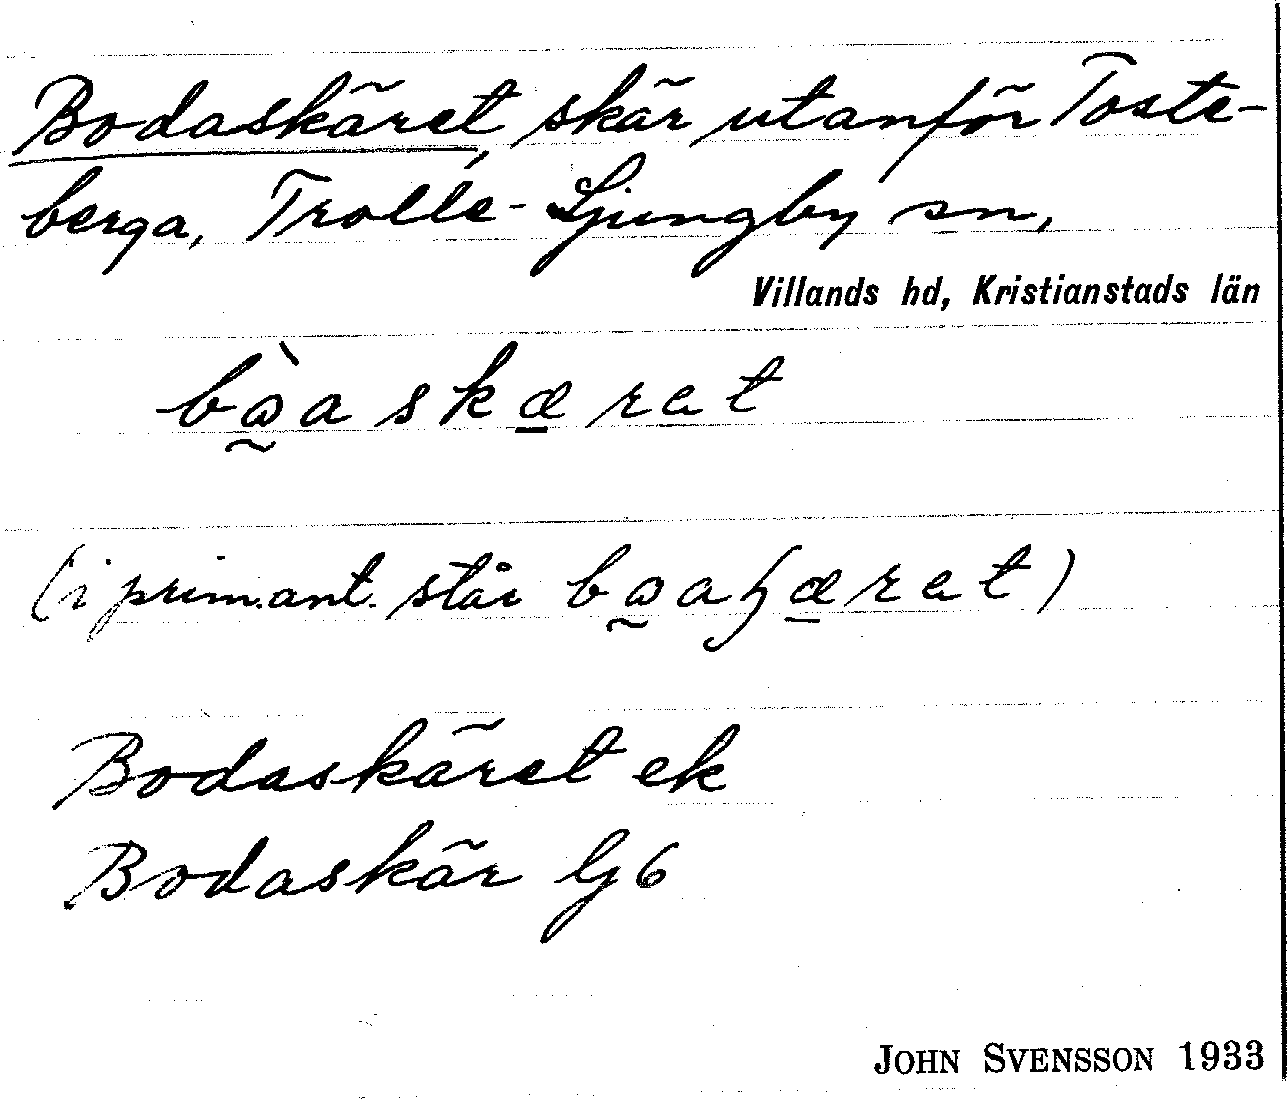 Bodaskäret, skär utanför Toste-
berga, Trolle-Ljungby sn,
Villands hd, Kristianstads län
(i prim.ant. står
Bodaskäret ek
Bodaskär lj 6
JOHN SVENSSON 1933